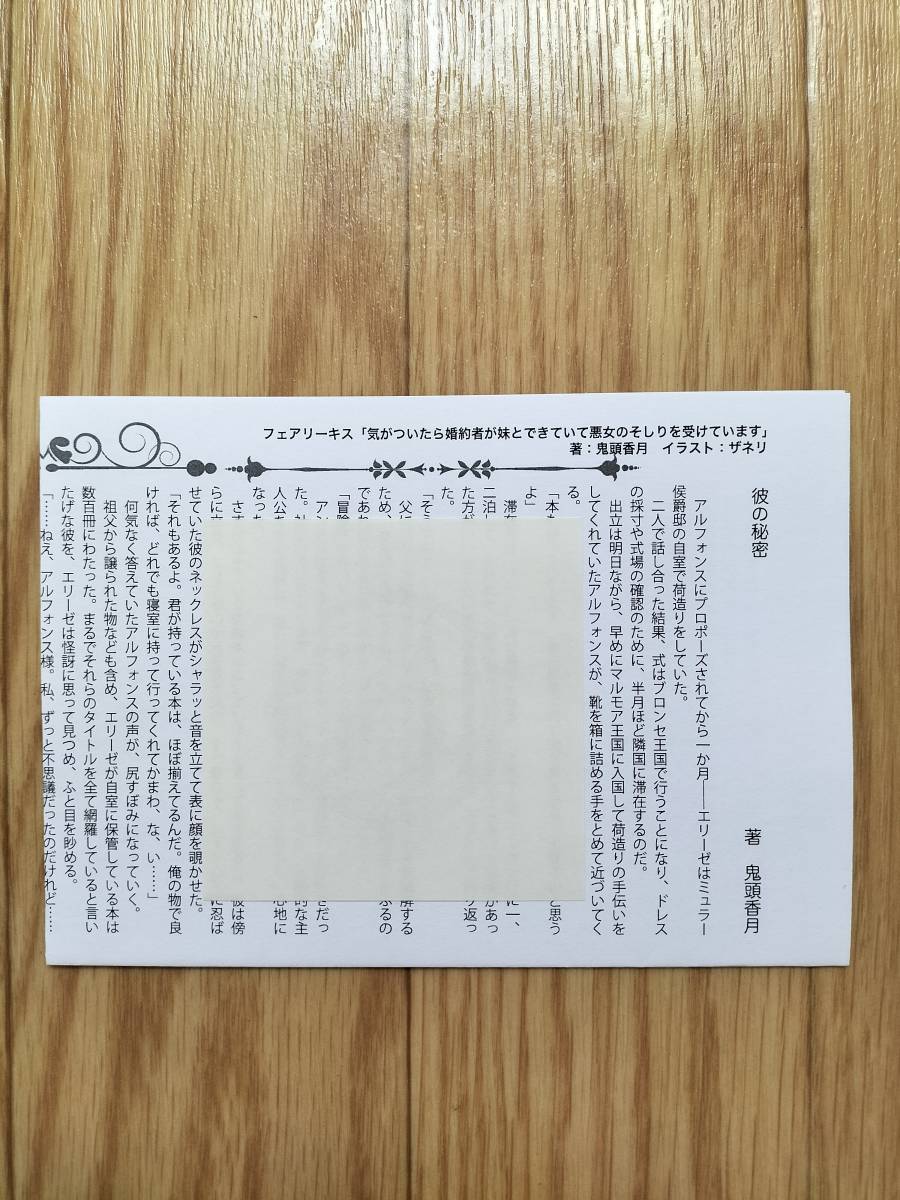 フェアリーキス「気がついたら婚約者が妹とできていて悪女のそしりを受けています」
著:鬼頭香月 イラスト:ザネリ
彼の秘密
著 鬼頭香月
アルフォンスにプロポーズされてから一か月――エリーゼはミュラー
侯爵邸の自室で荷造りをしていた。
二人で話し合った結果、式はブロンセ王国で行うことになり、ドレス
の採寸や式場の確認のために、半月ほど隣国に滞在するのだ。
出立は明日ながら、早めにマルモア王国に入国して荷造りの手伝いを
してくれていたアルフォンスが、靴を箱に詰める手をとめて近づいてく
る。
「本も
と思う
よ」
滞在
に一、
二泊し
があっ
た方が
り返っ
た。
「そう
父に
解する
ため、
ぶるの
であれ
「冒険
アン
きだっ
た。社
的な主
人公き
心地に
なった
さす
彼は傍
らに
に忍ば
せていた彼のネックレスがシャラッと音を立てて表に顔を覗かせた。
「それもあるよ。君が持っている本は、ほぼ揃えてるんだ。俺の物で良
ければ、どれでも寝室に持って行ってくれてかまわ、な、い……」
何気なく答えていたアルフォンスの声が、尻すぼみになっていく。
祖父から譲られた物なども含め、エリーゼが自室に保管している本は
数百冊にわたった。まるでそれらのタイトルを全て網羅していると言い
たげな彼を、エリーゼは怪訝に思って見つめ、ふと目を眇める。
「……ねえ、アルフォンス様。私、ずっと不思議だったのだけれど……